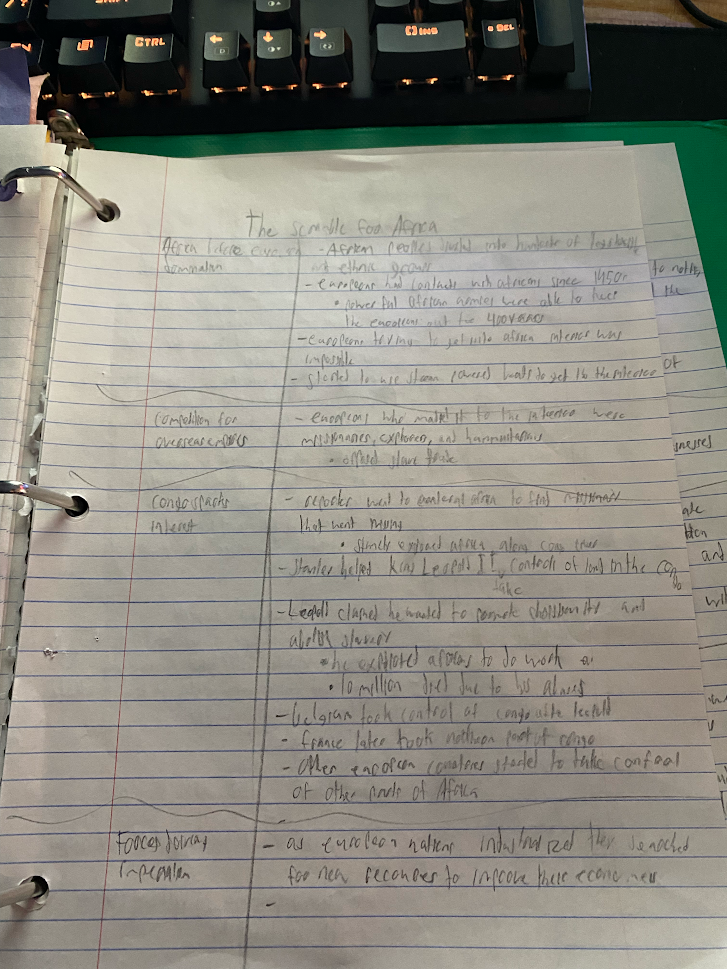 CTRL
INS
DEL
The scramble foo Africa
Africa before European - African peoples divided into hundreds of
domination and ethnic groups
- europeans had contacts with africans since 1450s
• powerful african armies were able to keep
the europeans out for 400 years
- europeans trying to get into africa interior was
impossible
- started to use steam powered boats to get to the interior of
Competition for - europeans who made it to the interior were
overseas empires missionaries, explorers, and humanitarians
• opposed slave trade
Congo sparks - reporter went to central africa to find
interest that went missing
• Stanley explored africa along congo river
- Stanley helped King Leopold II take controls of land in the Congo
- Leopold claimed he wanted to promote christianity and
abolish slavery
• he exploited africans to do work
• 10 million died due to his abuses
- Belgian took control of congo after leopold
- france later took northern part of congo
- Other european countries started to take control
of other parts of Africa
Forces driving - as european nations industrialized they searched
Imperialism for new recources to improve there economies
-
to
the
and